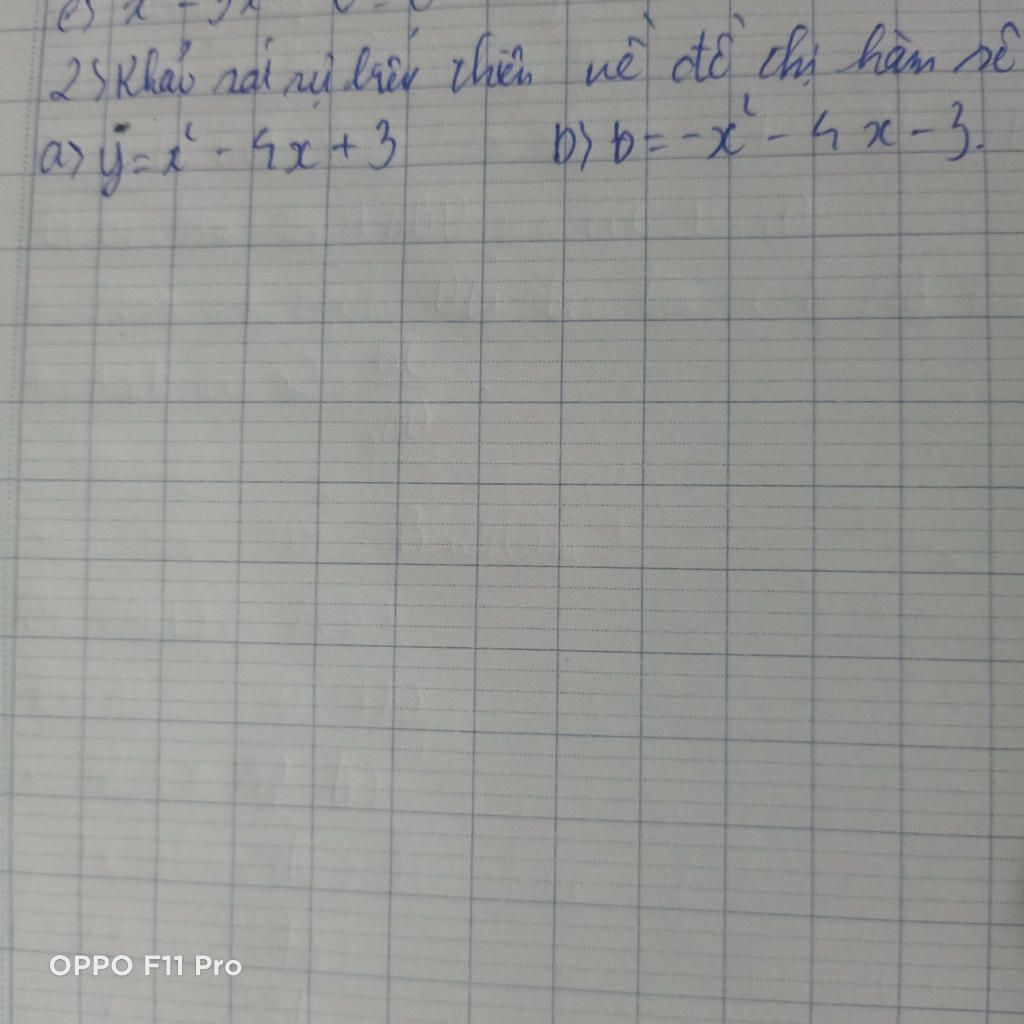 2) Khảo sát sự biến thiên vẽ đồ thị hàm số
a) y = x² - 4x + 3 b) b = -x² - 4x - 3.
OPPO F11 Pro